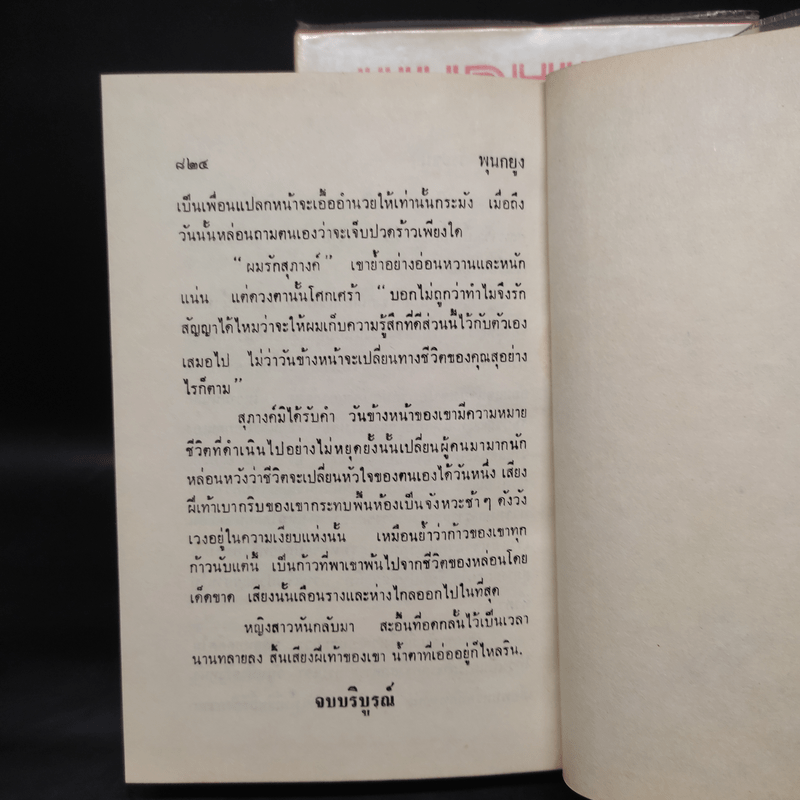 ๘๒๔ พุนกยูง
เป็นเพื่อนแปลกหน้าจะเอื้ออำนวยให้เท่านั้นกระมัง เมื่อถึง
วันนั้นหล่อนถามตนเองว่าจะเจ็บปวดร้าวเพียงใด
“ผมรักสุภางค์” เขาย้ำอย่างอ่อนหวานและหนัก
แน่น แต่ดวงตานั้นโศกเศร้า “บอกไม่ถูกว่าทำไมจึงรัก
สัญญาได้ไหมว่าจะให้ผมเก็บความรู้สึกที่ดีส่วนนี้ไว้กับตัวเอง
เสมอไป ไม่ว่าวันข้างหน้าจะเปลี่ยนทางชีวิตของคุณสุอย่าง
ไรก็ตาม”
สุภางค์มิได้รับคำ วันข้างหน้าของเขามีความหมาย
ชีวิตที่ดำเนินไปอย่างไม่หยุดยั้งนั้นเปลี่ยนผู้คนมามากนัก
หล่อนหวังว่าชีวิตจะเปลี่ยนหัวใจของตนเองได้วันหนึ่ง เสียง
ฝีเท้าเบากริบของเขากระทบพื้นห้องเป็นจังหวะช้าๆ ดังวัง
เวงอยู่ในความเงียบแห่งนั้น เหมือนย้ำว่าก้าวของเขาทุก
ก้าวนับแต่นี้ เป็นก้าวที่พาเขาพ้นไปจากชีวิตของหล่อนโดย
เด็ดขาด เสียงนั้นเลือนรางและห่างไกลออกไปในที่สุด
หญิงสาวหันกลับมา สะอื้นที่อดกลั้นไว้เป็นเวลา
นานทลายลง สิ้นเสียงฝีเท้าของเขา น้ำตาที่เอ่ออยู่ก็ไหลริน.
จบบริบูรณ์